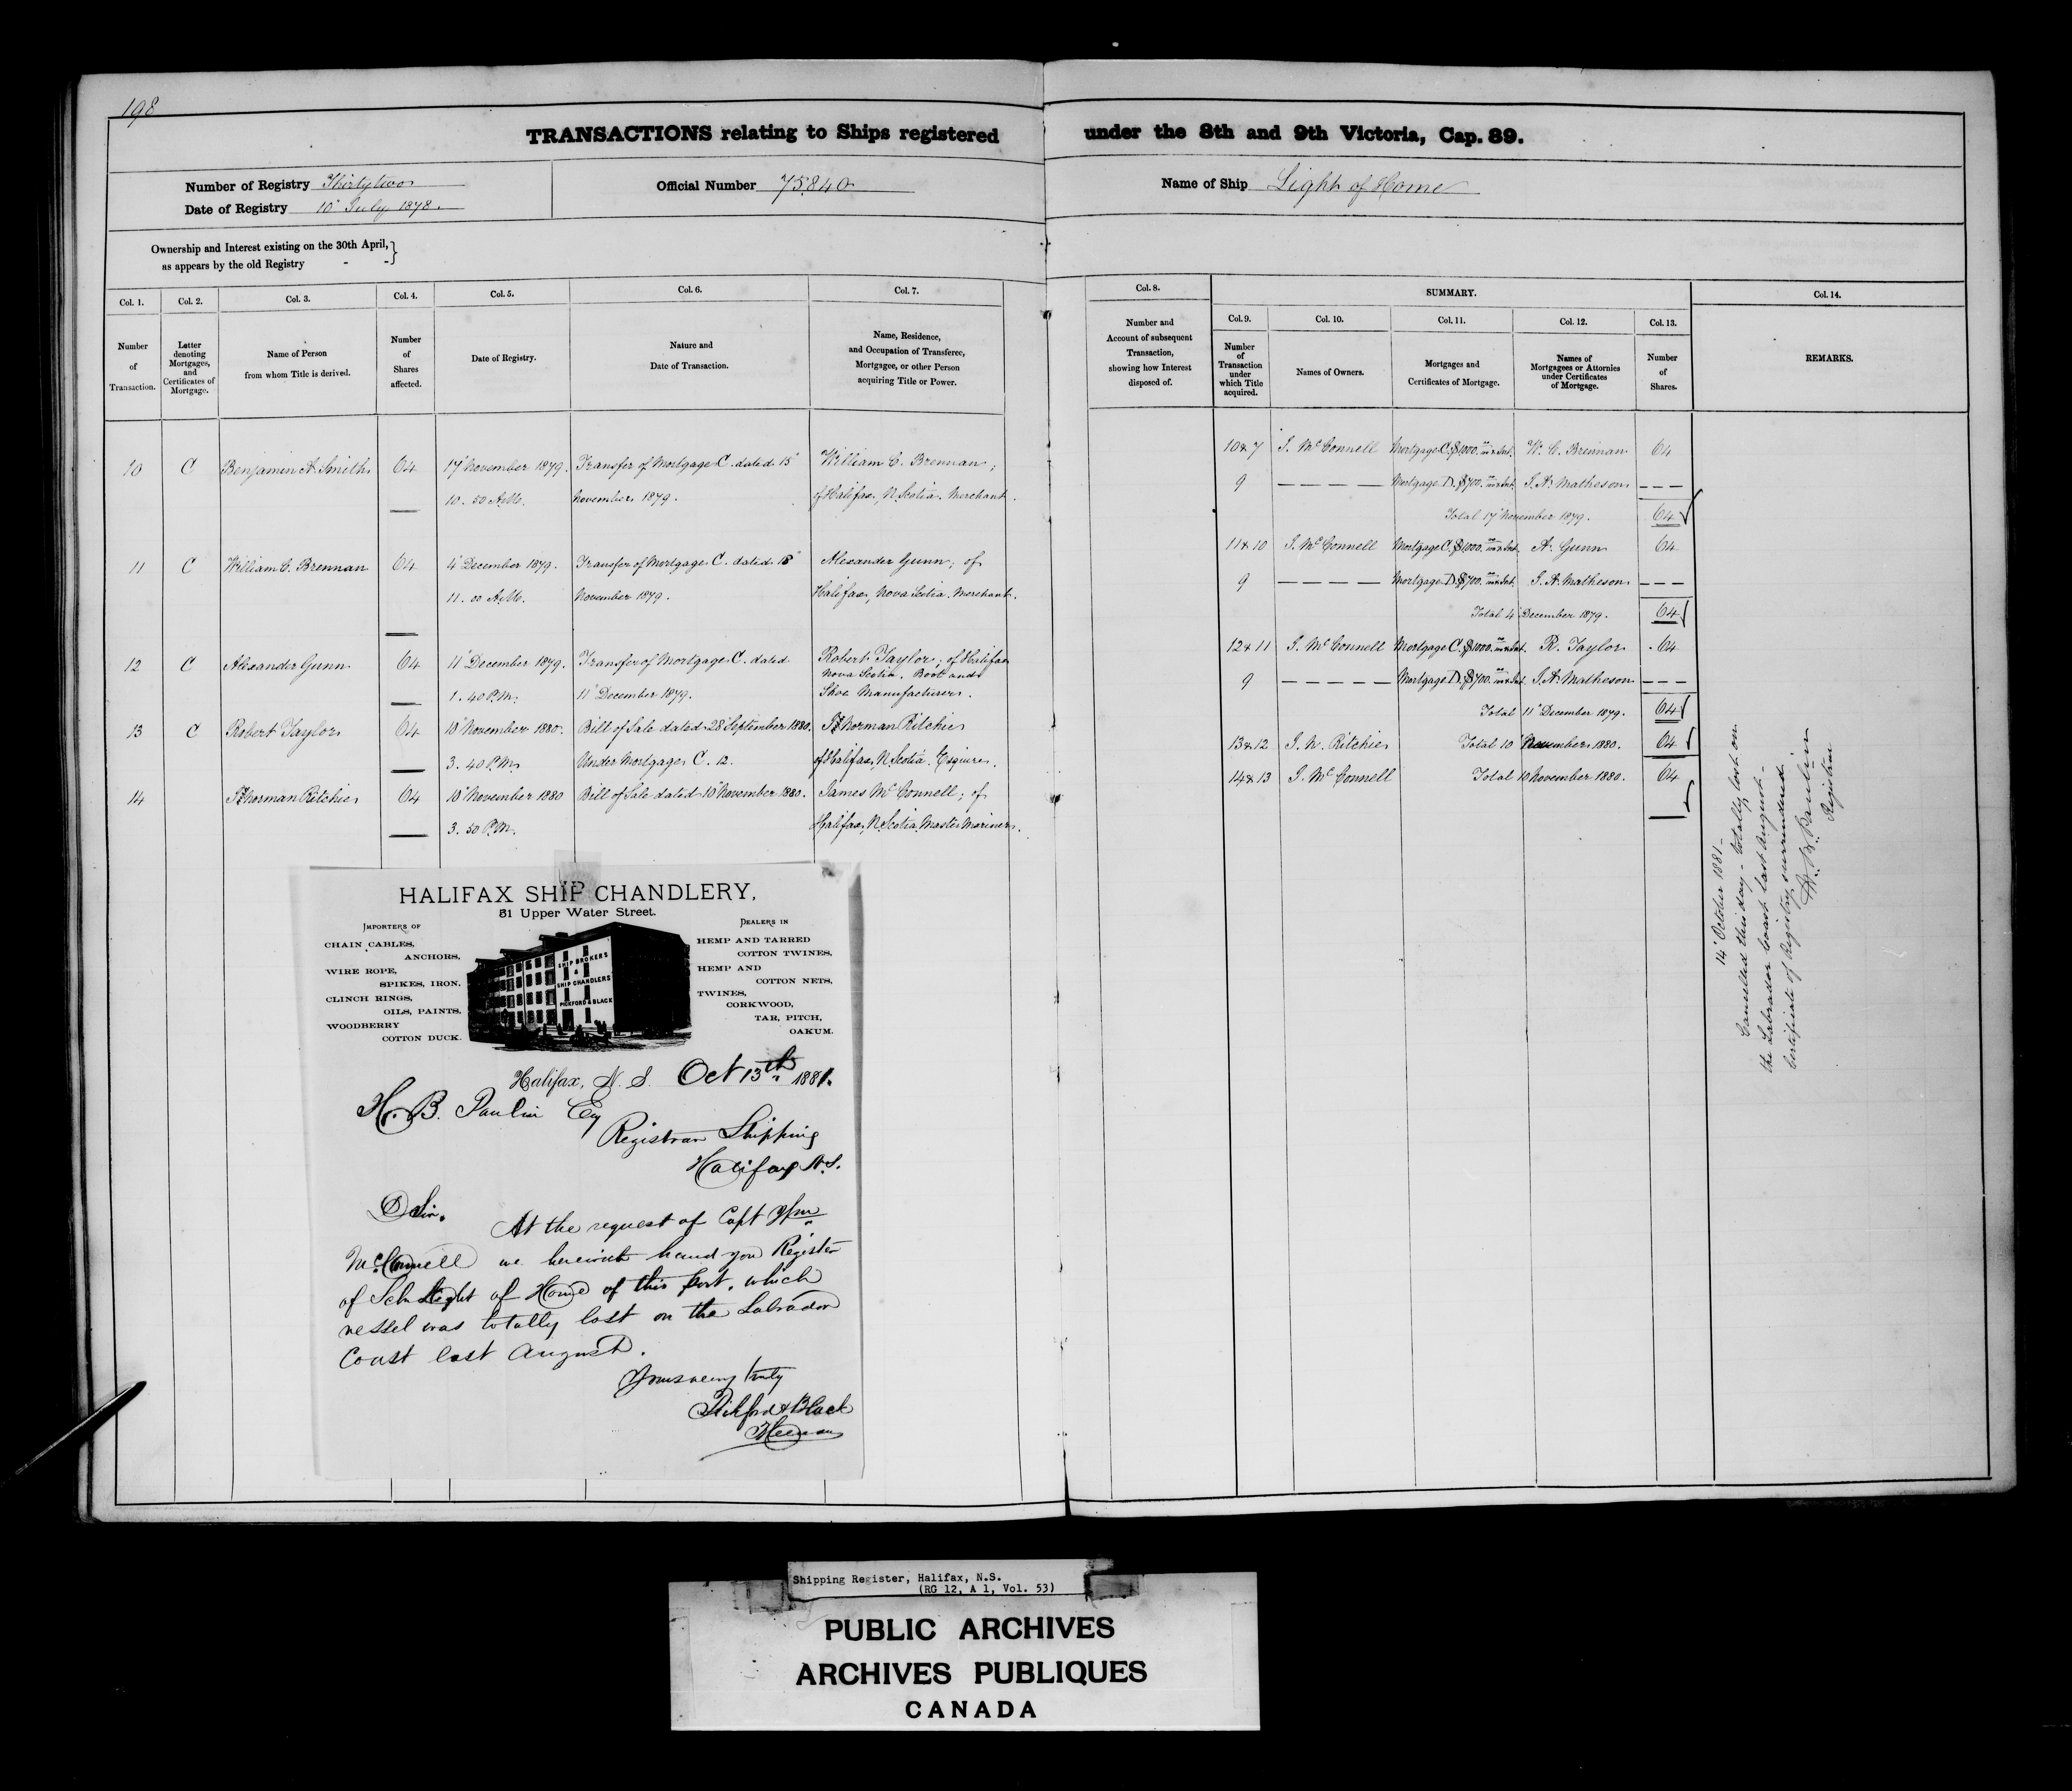 198
TRANSACTIONS relating to Ships registered under the 8th and 9th Victoria, Cap. 89.
Number of Registry Thirty two
Date of Registry 10" July 1878.
Official Number 75840
Name of Ship Light of Home
Ownership and Interest existing on the 30th April, }
as appears by the old Registry - - }
Col. 1.
Number
of
Transaction.
Col. 2.
Letter
denoting
Mortgages,
and
Certificates of
Mortgage.
Col. 3.
Name of Person
from whom Title is derived.
Col. 4.
Number
of
Shares
affected.
Col. 5.
Date of Registry.
Col. 6.
Nature and
Date of Transaction.
Col. 7.
Name, Residence,
and Occupation of Transferee,
Mortgagee, or other Person
acquiring Title or Power.
Col. 8.
Number and
Account of subsequent
Transaction,
showing how Interest
disposed of.
SUMMARY.
Col. 9.
Number
of
Transaction
under
which Title
acquired.
Col. 10.
Names of Owners.
Col. 11.
Mortgages and
Certificates of Mortgage.
Col. 12.
Names of
Mortgagees or Attornies
under Certificates
of Mortgage.
Col. 13.
Number
of
Shares.
Col. 14.
REMARKS.
10 C Benjamin A. Smith 64 17" November 1879. Transfer of Mortgage C. dated 15" William C. Brennan;
10. 50 A.M. November 1879. of Halifax, N. Scotia. Merchant.
11 C William C. Brennan 64 4" December 1879. Transfer of Mortgage C. dated 18" Alexander Gunn; of
11. 00 A.M. November 1879. Halifax, Nova Scotia. Merchant.
12 C Alexander Gunn 64 11" December 1879. Transfer of Mortgage C. dated Robert Taylor; of Halifax
Nova Scotia. Boot and
1. 40 P.M. 11" December 1879. Shoe Manufacturer.
13 C Robert Taylor 64 10" November 1880. Bill of Sale dated 28" September 1880. Norman Ritchie
3. 40 P.M. Under Mortgage C. 12. of Halifax, N. Scotia. Esquire.
14 Norman Ritchie 64 10" November 1880 Bill of Sale dated 10" November 1880. James McConnell; of
3. 50 P.M. Halifax, N. Scotia. Master Mariner.
10 & 7 J. McConnell Mortgage C. $1000. & Int. W. C. Brennan 64
9 — — — — — Mortgage D. $700. & Int. J. A. Matheson — — —
Total 17" November 1879. 64
11 & 10 J. McConnell Mortgage C. $1000. & Int. A. Gunn 64
9 — — — — — Mortgage D. $700. & Int. J. A. Matheson — — —
Total 4" December 1879. 64
12 & 11 J. McConnell Mortgage C. $1000. & Int. R. Taylor 64
9 — — — — — Mortgage D. $700. & Int. J. A. Matheson — — —
Total 11" December 1879. 64
13 & 12 J. N. Ritchie Total 10" November 1880. 64
14 & 13 J. McConnell Total 10 November 1880. 64
14" October 1881 -
Cancelled this day - totally lost on
the Labrador Coast last August -
Certificate of Registry surrendered.
H. B. Paulin
Registrar
HALIFAX SHIP CHANDLERY,
81 Upper Water Street.
IMPORTERS OF
CHAIN CABLES,
ANCHORS,
WIRE ROPE,
SPIKES, IRON,
CLINCH RINGS,
OILS, PAINTS,
WOODBERRY
COTTON DUCK.
SHIP BROKERS
&
SHIP CHANDLERS
PICKFORD & BLACK
DEALERS IN
HEMP AND TARRED
COTTON TWINES,
HEMP AND
COTTON NETS,
TWINES,
CORKWOOD,
TAR, PITCH,
OAKUM.
Halifax, N. S. Oct 13th 1881.
H. B. Paulin Esq
Registrar Shipping
Halifax N.S.
D Sir.
At the request of Capt
McConnell we herewith hand you Register
of Sch Light of Home of this port, which
vessel was totally lost on the Labrador
Coast last August.
Yours very truly
Pickford & Black
Shipping Register, Halifax, N.S.
(RG 12, A 1, Vol. 53)
PUBLIC ARCHIVES
ARCHIVES PUBLIQUES
CANADA